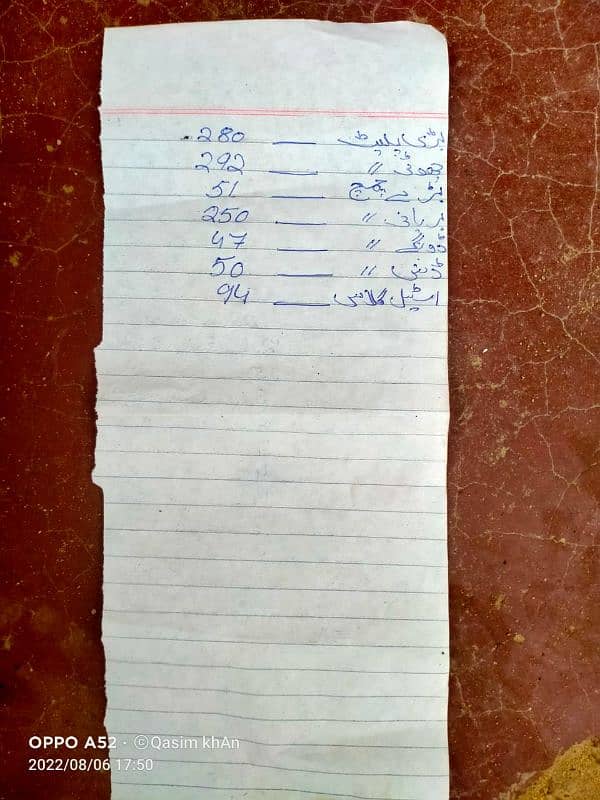 بڑی پلیٹ — 280
چھوٹی 〃 — 292
بڑے چمچ — 51
بریانی 〃 — 250
ڈونگے 〃 — 47
〃 — 50
اسٹیل گلاس — 94
OPPO A52 · ©Qasim khAn
2022/08/06 17:50